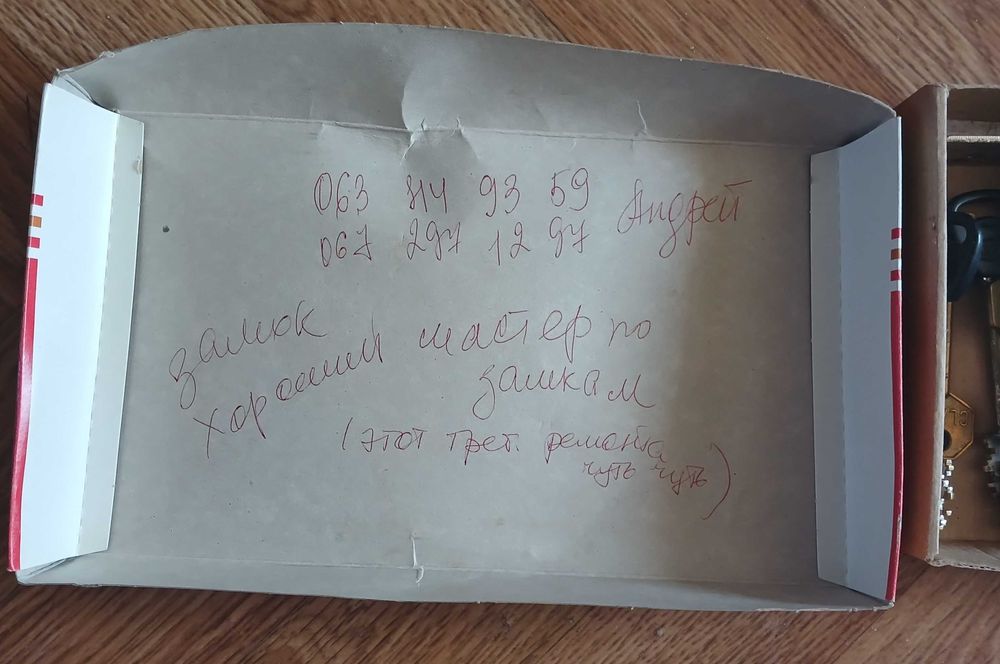 063 414 93 59 Андрей
067 297 12 97
замок
хороший мастер по
замкам
(этот трет. ремонта
чуть чуть)